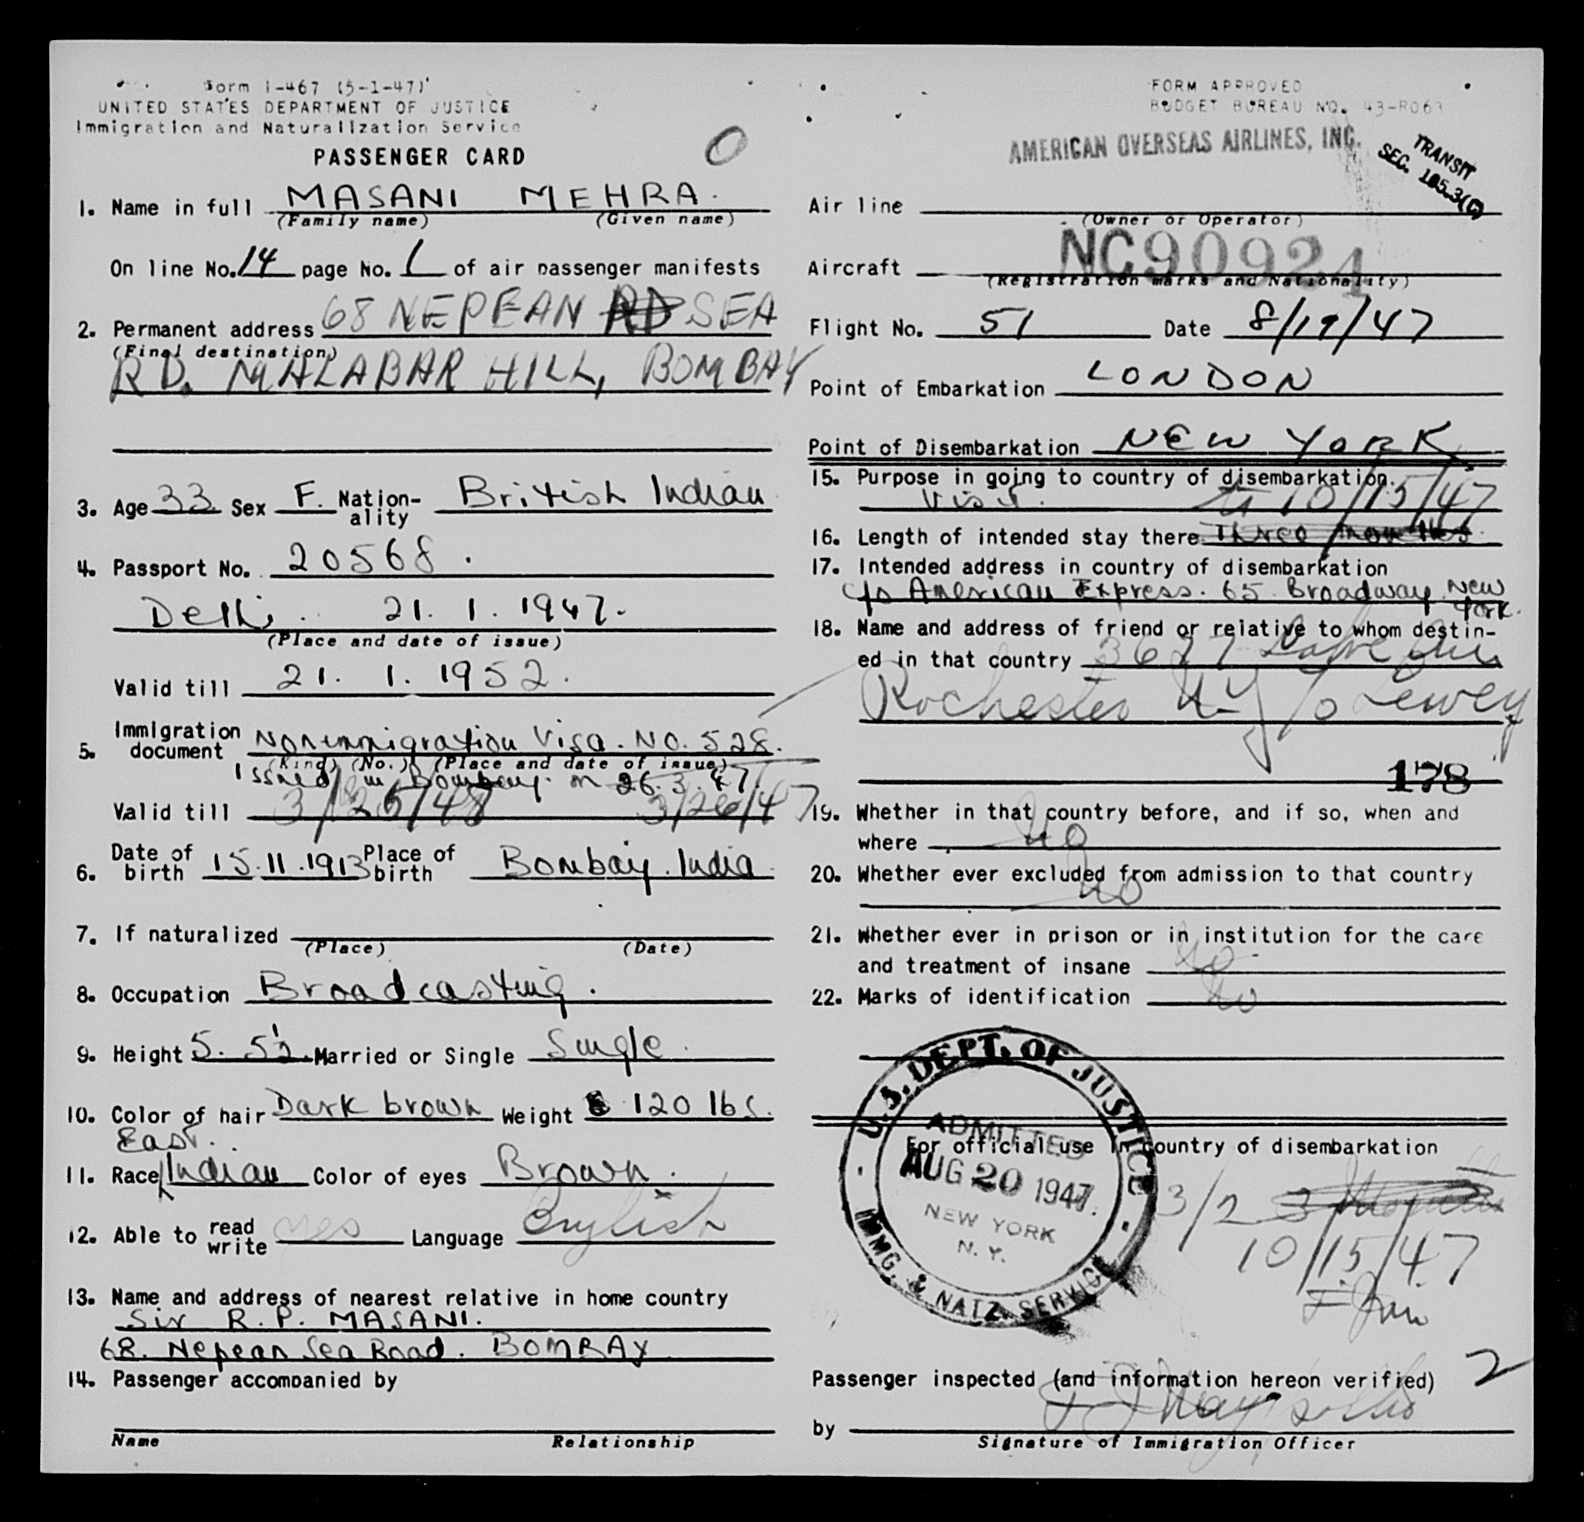 Form I-467 (5-1-47)
UNITED STATES DEPARTMENT OF JUSTICE
Immigration and Naturalization Service
PASSENGER CARD
O
1. Name in full MASANI MEHRA.
(Family name) (Given name)
On line No. 14 page No. 1 of air passenger manifests
2. Permanent address 68 NEPEAN RD SEA
(Final destination)
RD. MALABAR HILL, BOMBAY
3. Age 33 Sex F. Nationality British Indian
4. Passport No. 20568.
Delhi. 21. 1. 1947.
(Place and date of issue)
Valid till 21. 1. 1952.
5. Immigration document Nonimmigration Visa. No. 528.
(Kind) (No.) (Place and date of issue)
Issued in Bombay on 26.3.47.
Valid till 3/25/48 3/26/47
6. Date of birth 15.11.1913 Place of birth Bombay. India
7. If naturalized
(Place) (Date)
8. Occupation Broadcasting.
9. Height 5. 5½' Married or Single Single.
10. Color of hair Dark brown Weight 120 lbs.
East.
11. Race Indian Color of eyes Brown.
12. Able to read write yes Language English
13. Name and address of nearest relative in home country
Sir R.P. MASANI.
68. Nepean Sea Road. BOMBAY
14. Passenger accompanied by
Name Relationship
FORM APPROVED
BUDGET BUREAU NO. 43-R063
AMERICAN OVERSEAS AIRLINES, INC.
TRANSIT
SEC. 105.3(C)
Air line
(Owner or Operator)
Aircraft NC90924
(Registration marks and Nationality)
Flight No. 51 Date 8/19/47
Point of Embarkation LONDON
Point of Disembarkation NEW YORK
15. Purpose in going to country of disembarkation.
Visit. to 10/15/47
16. Length of intended stay there Three months
17. Intended address in country of disembarkation
c/o American Express. 65 Broadway. New York.
18. Name and address of friend or relative to whom destin-
ed in that country 3627 Lake Ave
Rochester N.Y. c/o Dewey
178
19. Whether in that country before, and if so, when and
where no
20. Whether ever excluded from admission to that country
no
21. Whether ever in prison or in institution for the care
and treatment of insane no
22. Marks of identification no
U.S. DEPT. OF JUSTICE
ADMITTED
AUG 20 1947
NEW YORK
N. Y.
IMMG. & NATZ. SERVICE
For official use in country of disembarkation
3/2
10/15/47
Passenger inspected (and information hereon verified) 2
by
Signature of Immigration Officer